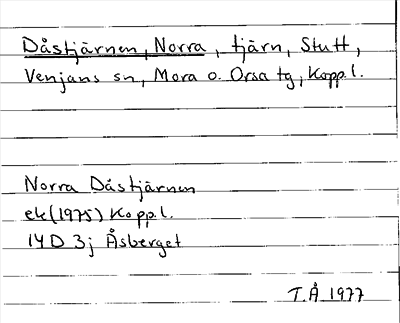 Dåstjärnen, Norra, tjärn, Stutt,
Venjans sn, Mora o. Orsa tg, Kopp.l.
Norra Dåstjärnen
ek (1975) Kopp.l.
14D 3j Åsberget
T.Å 1977